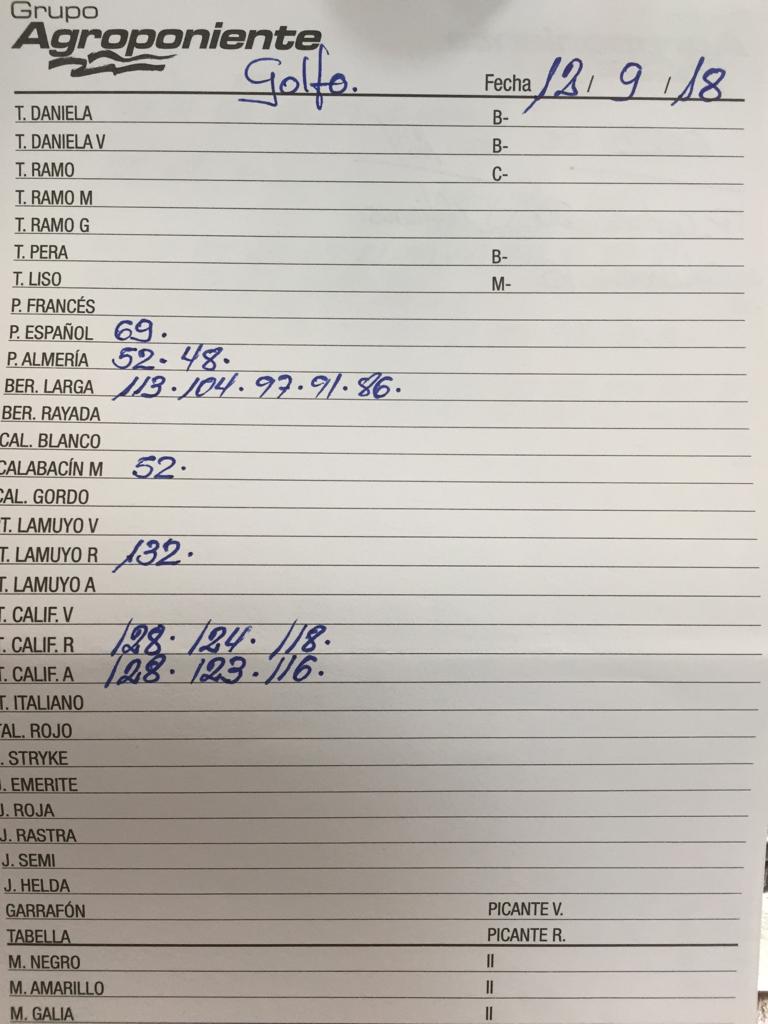 Grupo
Agroponiente
Golfo. Fecha 12/ 9 / 18
T. DANIELA B-
T. DANIELA V B-
T. RAMO C-
T. RAMO M
T. RAMO G
T. PERA B-
T. LISO M-
P. FRANCÉS
P. ESPAÑOL 69.
P. ALMERÍA 52. 48.
BER. LARGA 113. 104. 97. 91. 86.
BER. RAYADA
CAL. BLANCO
CALABACÍN M 52.
CAL. GORDO
T. LAMUYO V
T. LAMUYO R 132.
T. LAMUYO A
T. CALIF. V
T. CALIF. R 128. 124. 118.
T. CALIF. A 128. 123. 116.
T. ITALIANO
AL. ROJO
. STRYKE
. EMERITE
J. ROJA
J. RASTRA
J. SEMI
J. HELDA
GARRAFÓN PICANTE V.
TABELLA PICANTE R.
M. NEGRO II
M. AMARILLO II
M. GALIA II